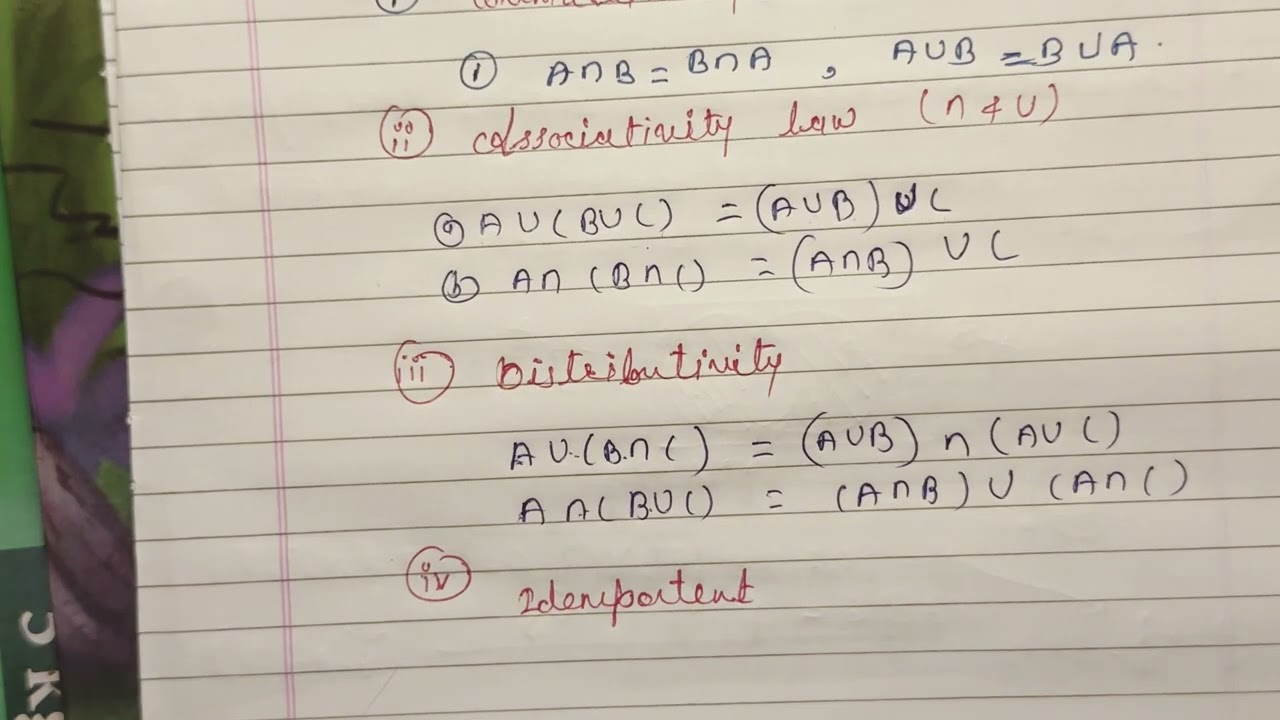 ① A∩B = B∩A , A∪B = B∪A.
(ii) Associativity law (∩ & ∪)
(a) A∪(B∪C) = (A∪B) ∪ C
(b) A∩(B∩C) = (A∩B) ∪ C
(iii) Distributivity
A∪(B∩C) = (A∪B) ∩ (A∪C)
A∩(B∪C) = (A∩B) ∪ (A∩C)
(iv) Idempotent